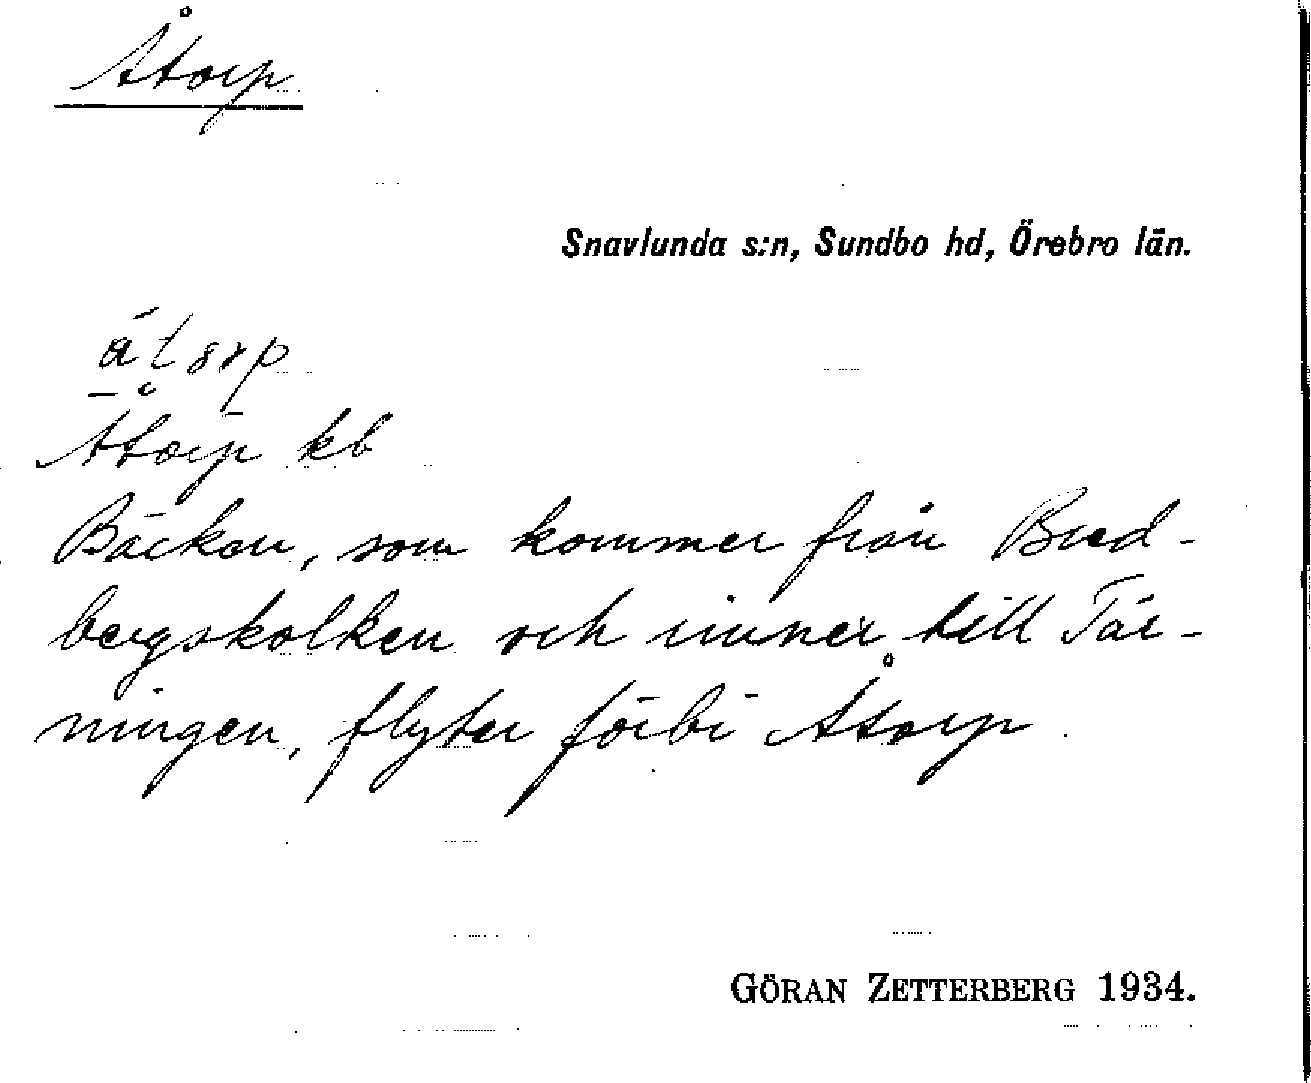 Åtorp
Snavlunda s:n, Sundbo hd, Örebro län.
Åtorp kb
Bäcken, som kommer från Bred-
bergskolken och rinner till Tär-
ningen, flyter förbi Åtorp
GÖRAN ZETTERBERG 1934.